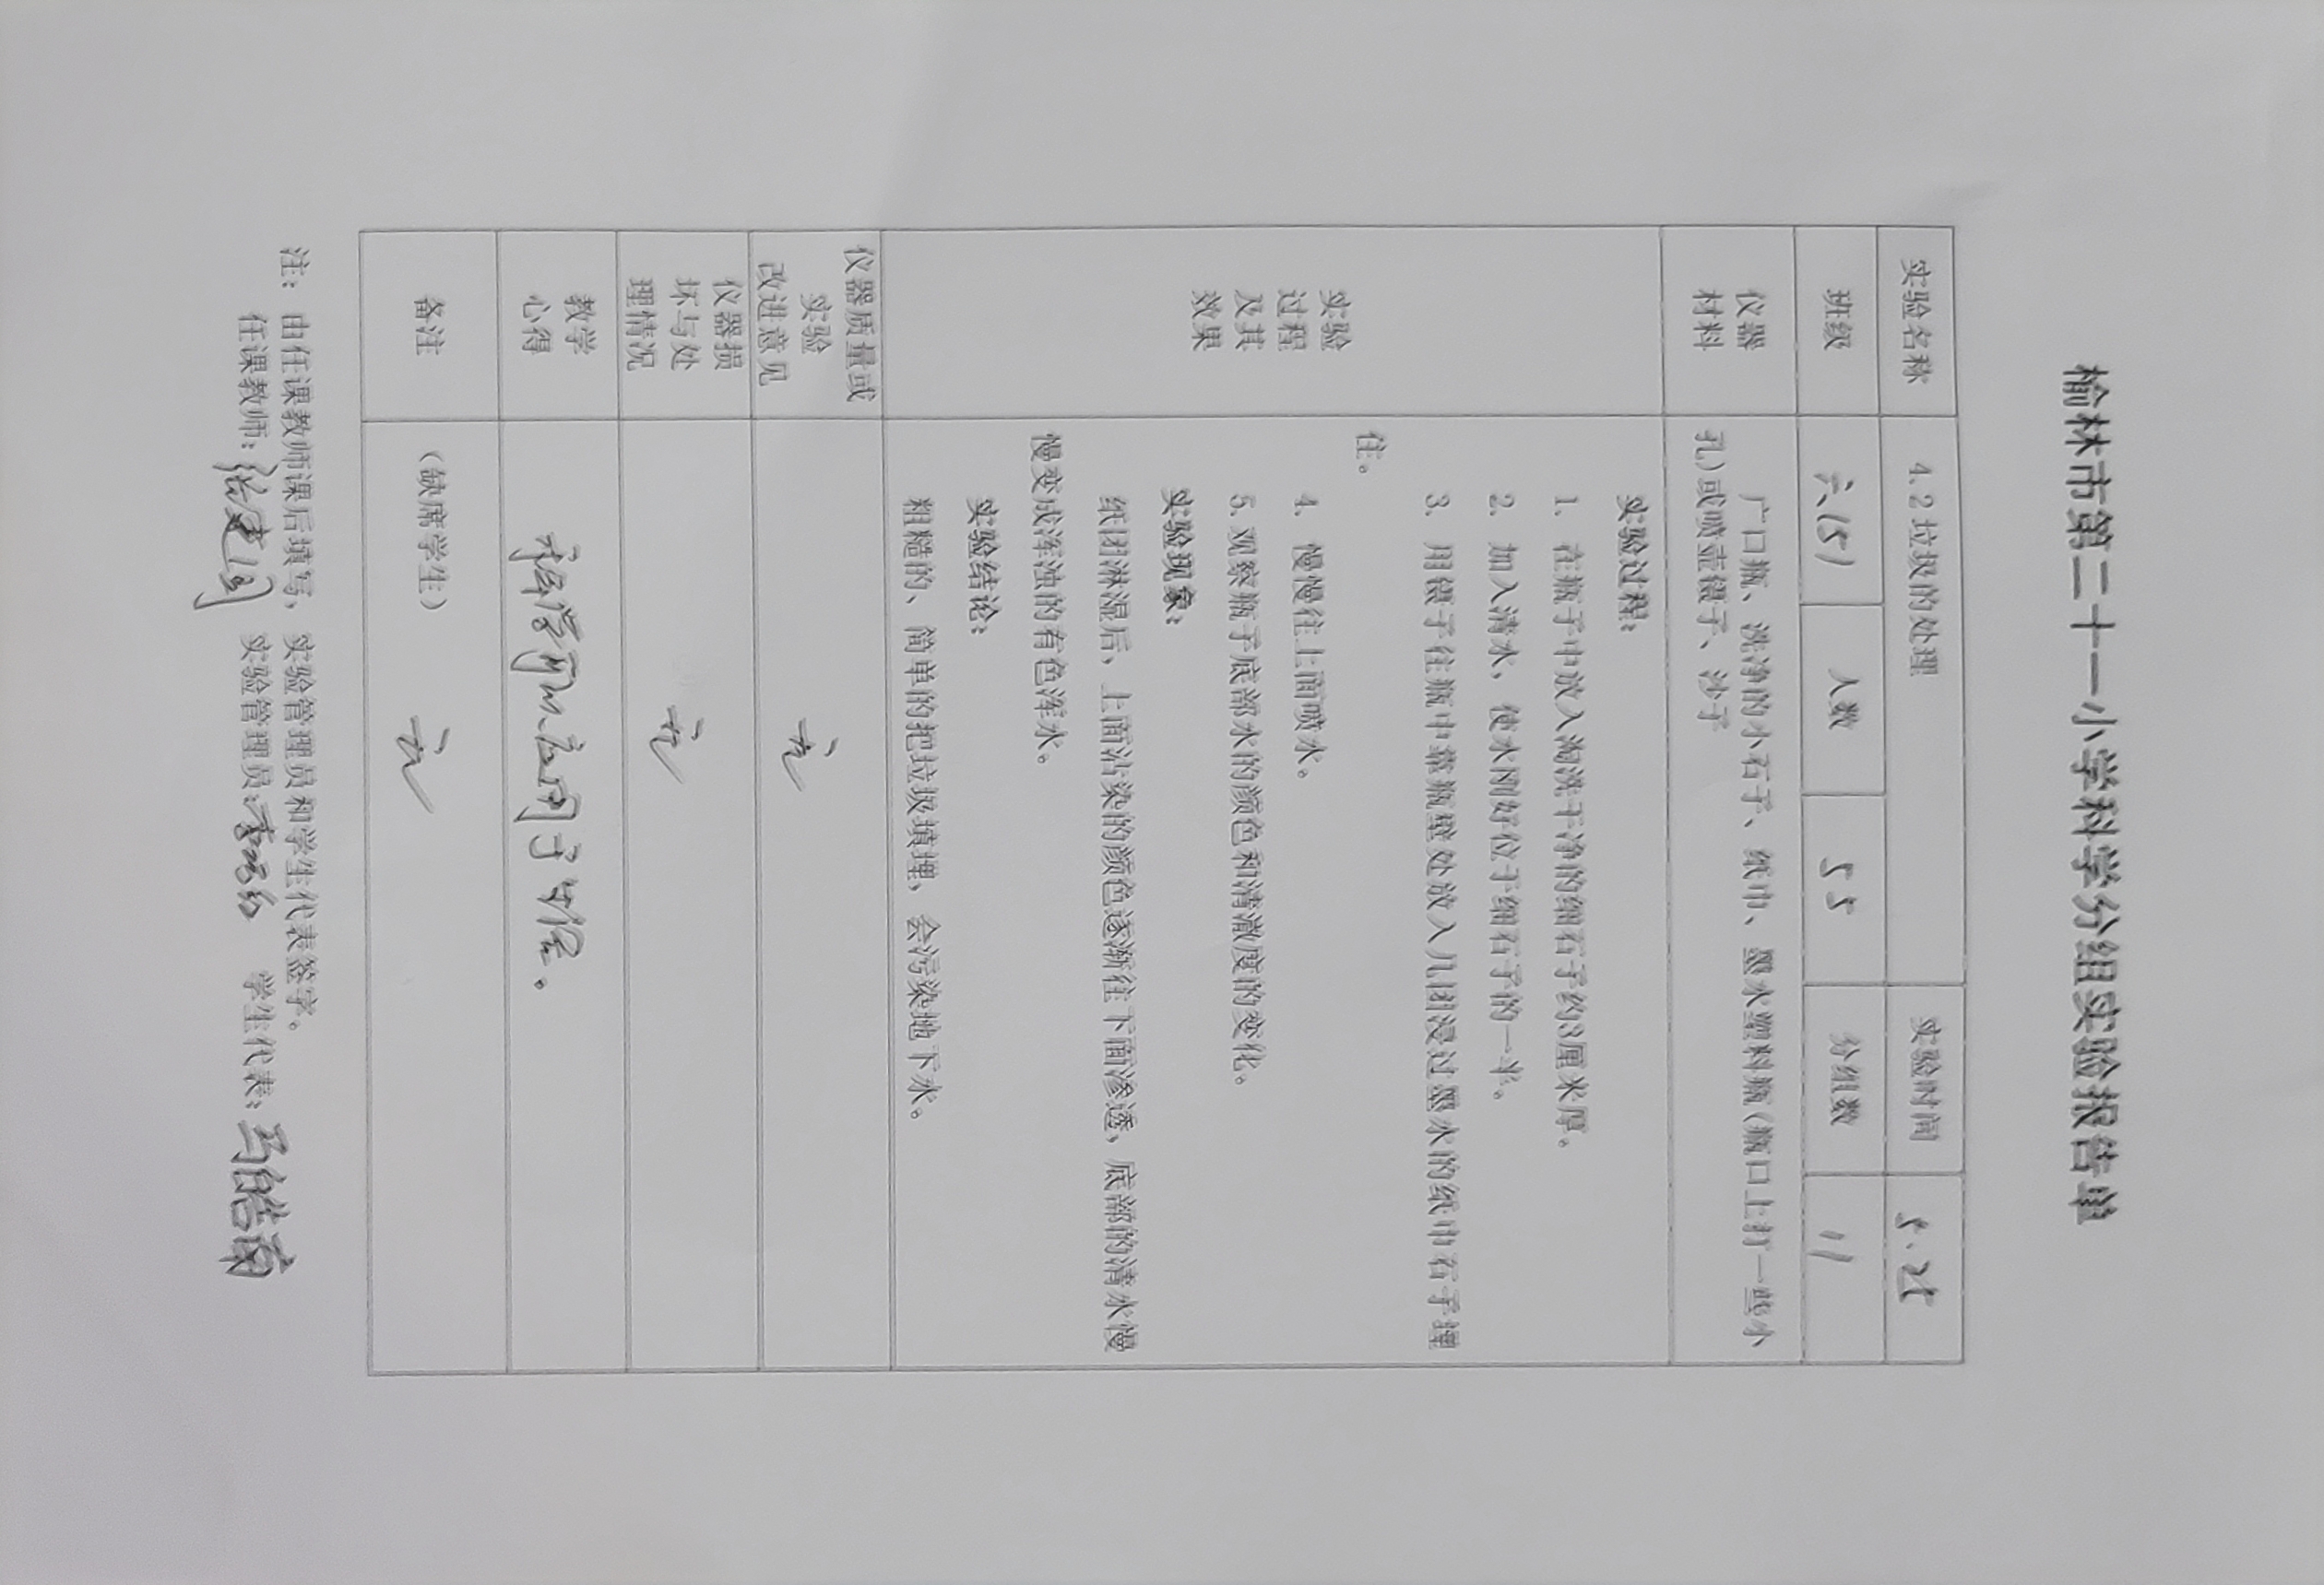 榆林市第二十一小学科学分组实验报告单
实验名称 4.2垃圾的处理 实验时间 5.25
班级 六(5) 人数 55 分组数 11
仪器
材料
广口瓶、洗净的小石子、纸巾、墨水塑料瓶(瓶口上打一些小
孔)或喷壶镊子、沙子
实验
过程
及其
效果
实验过程:
1. 在瓶子中放入淘洗干净的细石子约3厘米厚。
2. 加入清水,使水刚好位于细石子的一半。
3. 用镊子往瓶中靠瓶壁处放入几团浸过墨水的纸巾石子埋
住。
4. 慢慢往上面喷水。
5. 观察瓶子底部水的颜色和清澈度的变化。
实验现象:
纸团淋湿后,上面沾染的颜色逐渐往下面渗透,底部的清水慢
慢变成浑浊的有色浑水。
实验结论:
粗糙的、简单的把垃圾填埋,会污染地下水。
仪器质量或
实验
改进意见
无
仪器损
坏与处
理情况
无
教学
心得
将所学应用于生活。
备注
(缺席学生)
无
注:由任课教师课后填写,实验管理员和学生代表签字。
任课教师: 实验管理员: 学生代表:马皓南